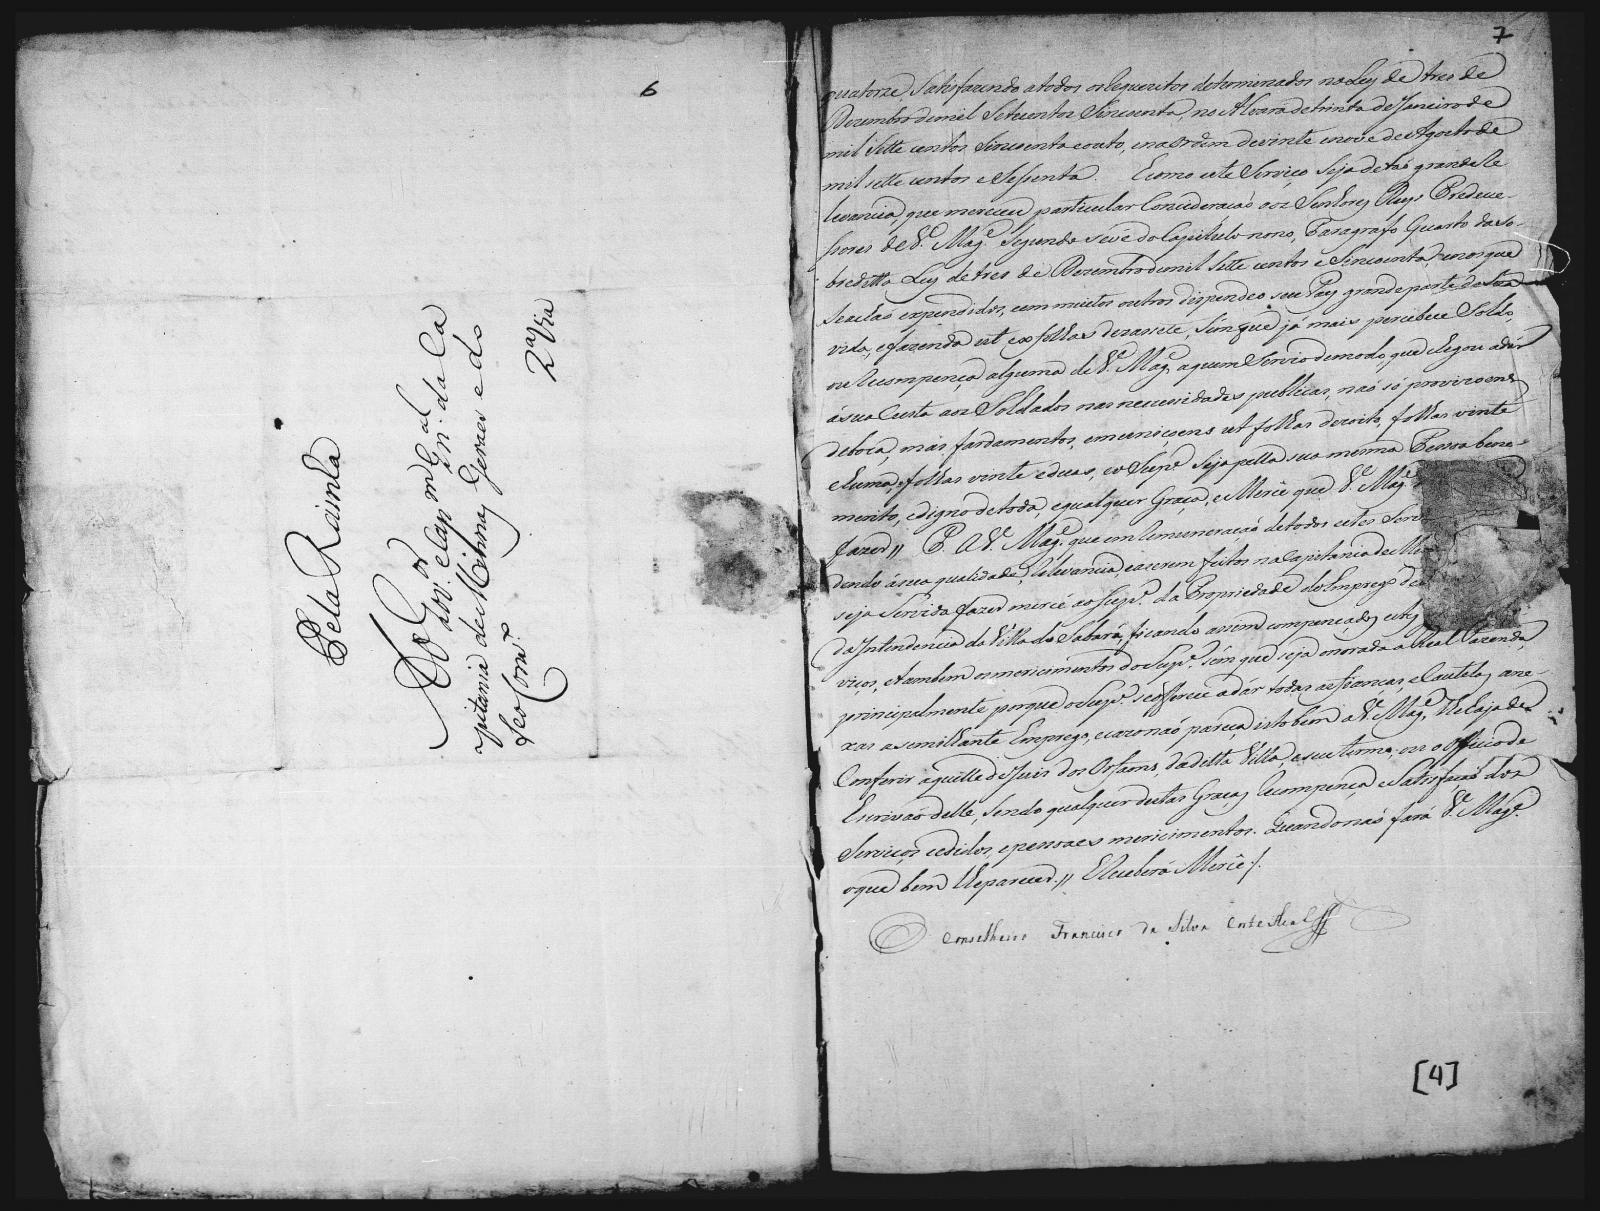 6
Pela Rainha
Ao Gov.or e Cap.m Gen.al da Ca
pitania de Minas Geraes e do
seo Con.
2.a Via
7
quatorze Satisfazendo atodos os Requeritos determinados na Ley de tres de
Dezembro demil Setecentos Sincoenta, no Alvara detrinta de Janeiro de
mil Sette centos Sincoenta eouto, enaOrdem devinte enove de Agosto de
mil sette centos e Sessenta. Ecomo este Serviço Seja detaõ grande Re
levancia, que mereceu particular Concideracaõ aoz Senhorez Reys Predece-
ssores de V.e Mag.e Segundo sevê do Capitulo nono, Paragrafo Quarto da so-
bredetta Ley de tres de Dezembro demil Sette centos e Sincoenta, enosque
Seachaõ expendidos, com muitos outros dispendeo seu Pay grande parte de Sua
vida, efazenda ut exfolhas dezasete, Semque já mais percebece Soldo,
ou Recompença alguma de V.e Mag.e aquem Servio demodo, que chegou adár
ásua Custa aoz Soldados nas necessidades publicas, naõ só provizoens
deboca, mas fardamentos, emuniçoens ut folhas dezoito, folhas vinte
ehuma, folhas vinte eduas, eo Sup.e Seja pella sua mesma Pessoa bene-
merito, edigno detoda, equalquer Graça, e Merce que V.e Mag.e
fazer // P. a V.e Mag.e que em Remuneracaõ detodos estes Serv
dendo ásua qualidade, Relevancia, easerem feitos na Capitania de Mi
seja Servida fazer mercê ao Sup.e da Propriedade do Emprego de
da Intendencia da Villa do Sabará, ficando assim compençados estes
viços, etambem os merecimentos do Sup.e sem que seja onorada a Real Fazenda,
principalmente porque o Sup.e se offerece adár todas as fianças, e Cautelas ane-
xas a semilhante Emprego, ecazo naõ páreça isto bem a V.e Mag.e lhe haja de
Conferir aquelle de Juiz dos Orfaons, da detta Villa, eseu termo, ou o Officio de
Escrivaõ delle, Sendo qualquer destas Graças Recompença, eSatisfaçaõ dos
Serviços cedidos, epessoaes merecimentos. Quando naõ fará V.e Mag.e
oque bem lhe parecer. // E Receberá Mercê /.
O Conselheiro Francisco da Silva Corte Real
[4]